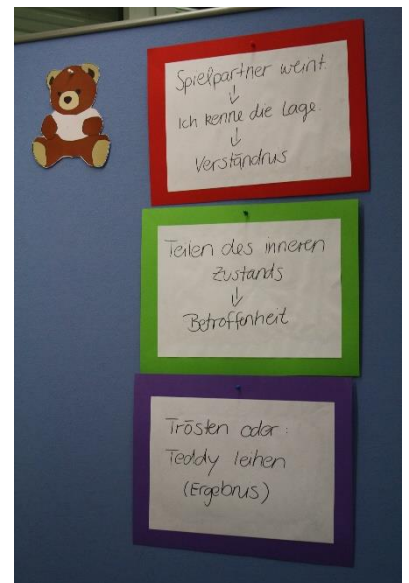 Spielpartner weint.
↓
Ich kenne die Lage.
↓
Verständnis
Teilen des inneren
Zustands
↓
Betroffenheit
Trösten oder:
Teddy leihen
(Ergebnis)